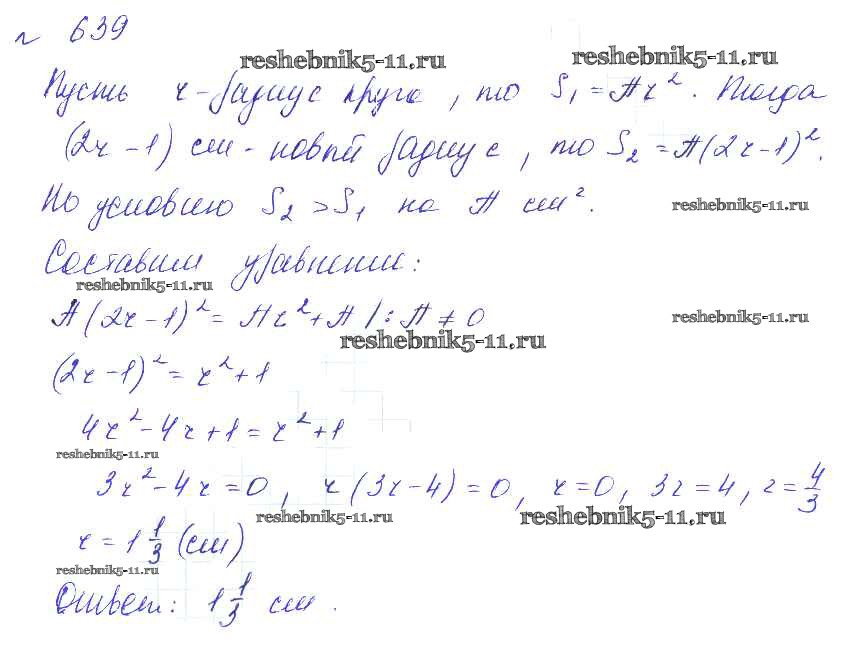 № 639
reshebnik5-11.ru reshebnik5-11.ru
Пусть r - радиус круга, то S₁ = πr². Тогда
(2r - 1) см - новый радиус, то S₂ = π(2r-1)².
По условию S₂ > S₁ на π см². reshebnik5-11.ru
Составим уравнение:
reshebnik5-11.ru
π(2r-1)² = πr² + π / : π ≠ 0 reshebnik5-11.ru
reshebnik5-11.ru
(2r-1)² = r² + 1
4r² - 4r + 1 = r² + 1
reshebnik5-11.ru
3r² - 4r = 0, r(3r - 4) = 0, r = 0, 3r = 4, r = 4/3
reshebnik5-11.ru reshebnik5-11.ru
r = 1 1/3 (см)
reshebnik5-11.ru
Ответ: 1 1/3 см.